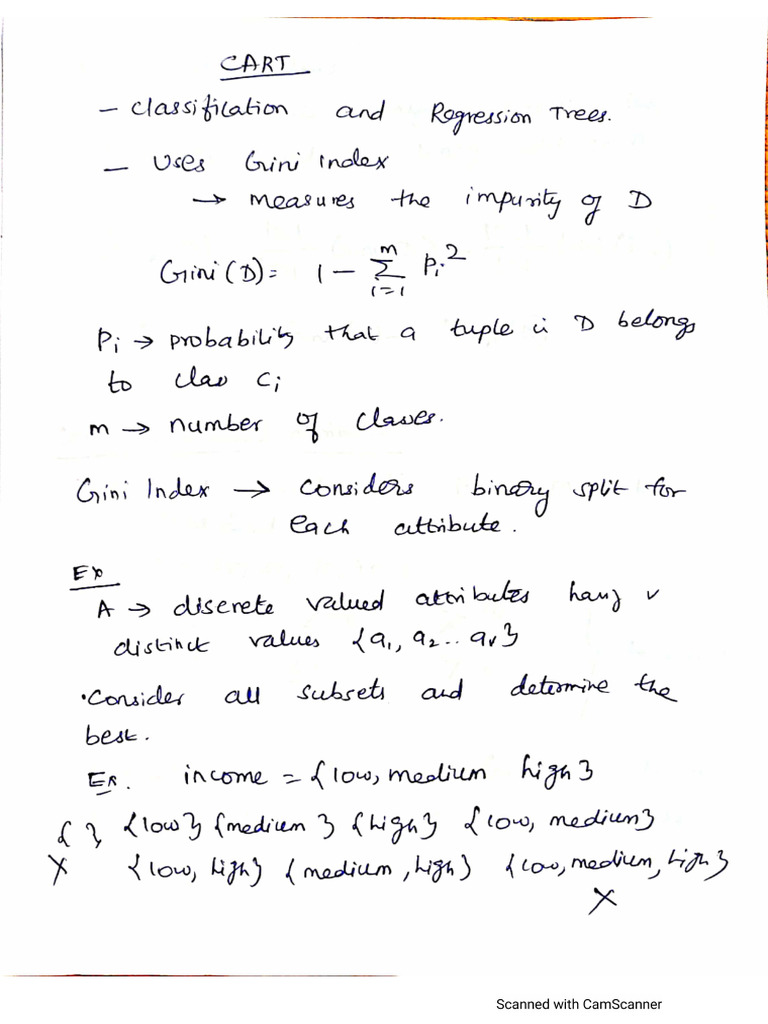 CART
- Classification and Regression Trees.
- Uses Gini Index
→ measures the impurity of D
Gini(D) = 1 - Σ_{i=1}^{m} Pi²
Pi → probability that a tuple in D belongs
to class Ci
m → number of classes.
Gini Index → considers binary split for
each attribute.
Ex
A → discrete valued attributes having v
distinct values {a1, a2.. av}
• Consider all subsets and determine the
best.
Ex. income = {low, medium high}
{ } {low} {medium} {high} {low, medium}
X {low, high} {medium, high} {low, medium, high}
X
Scanned with CamScanner